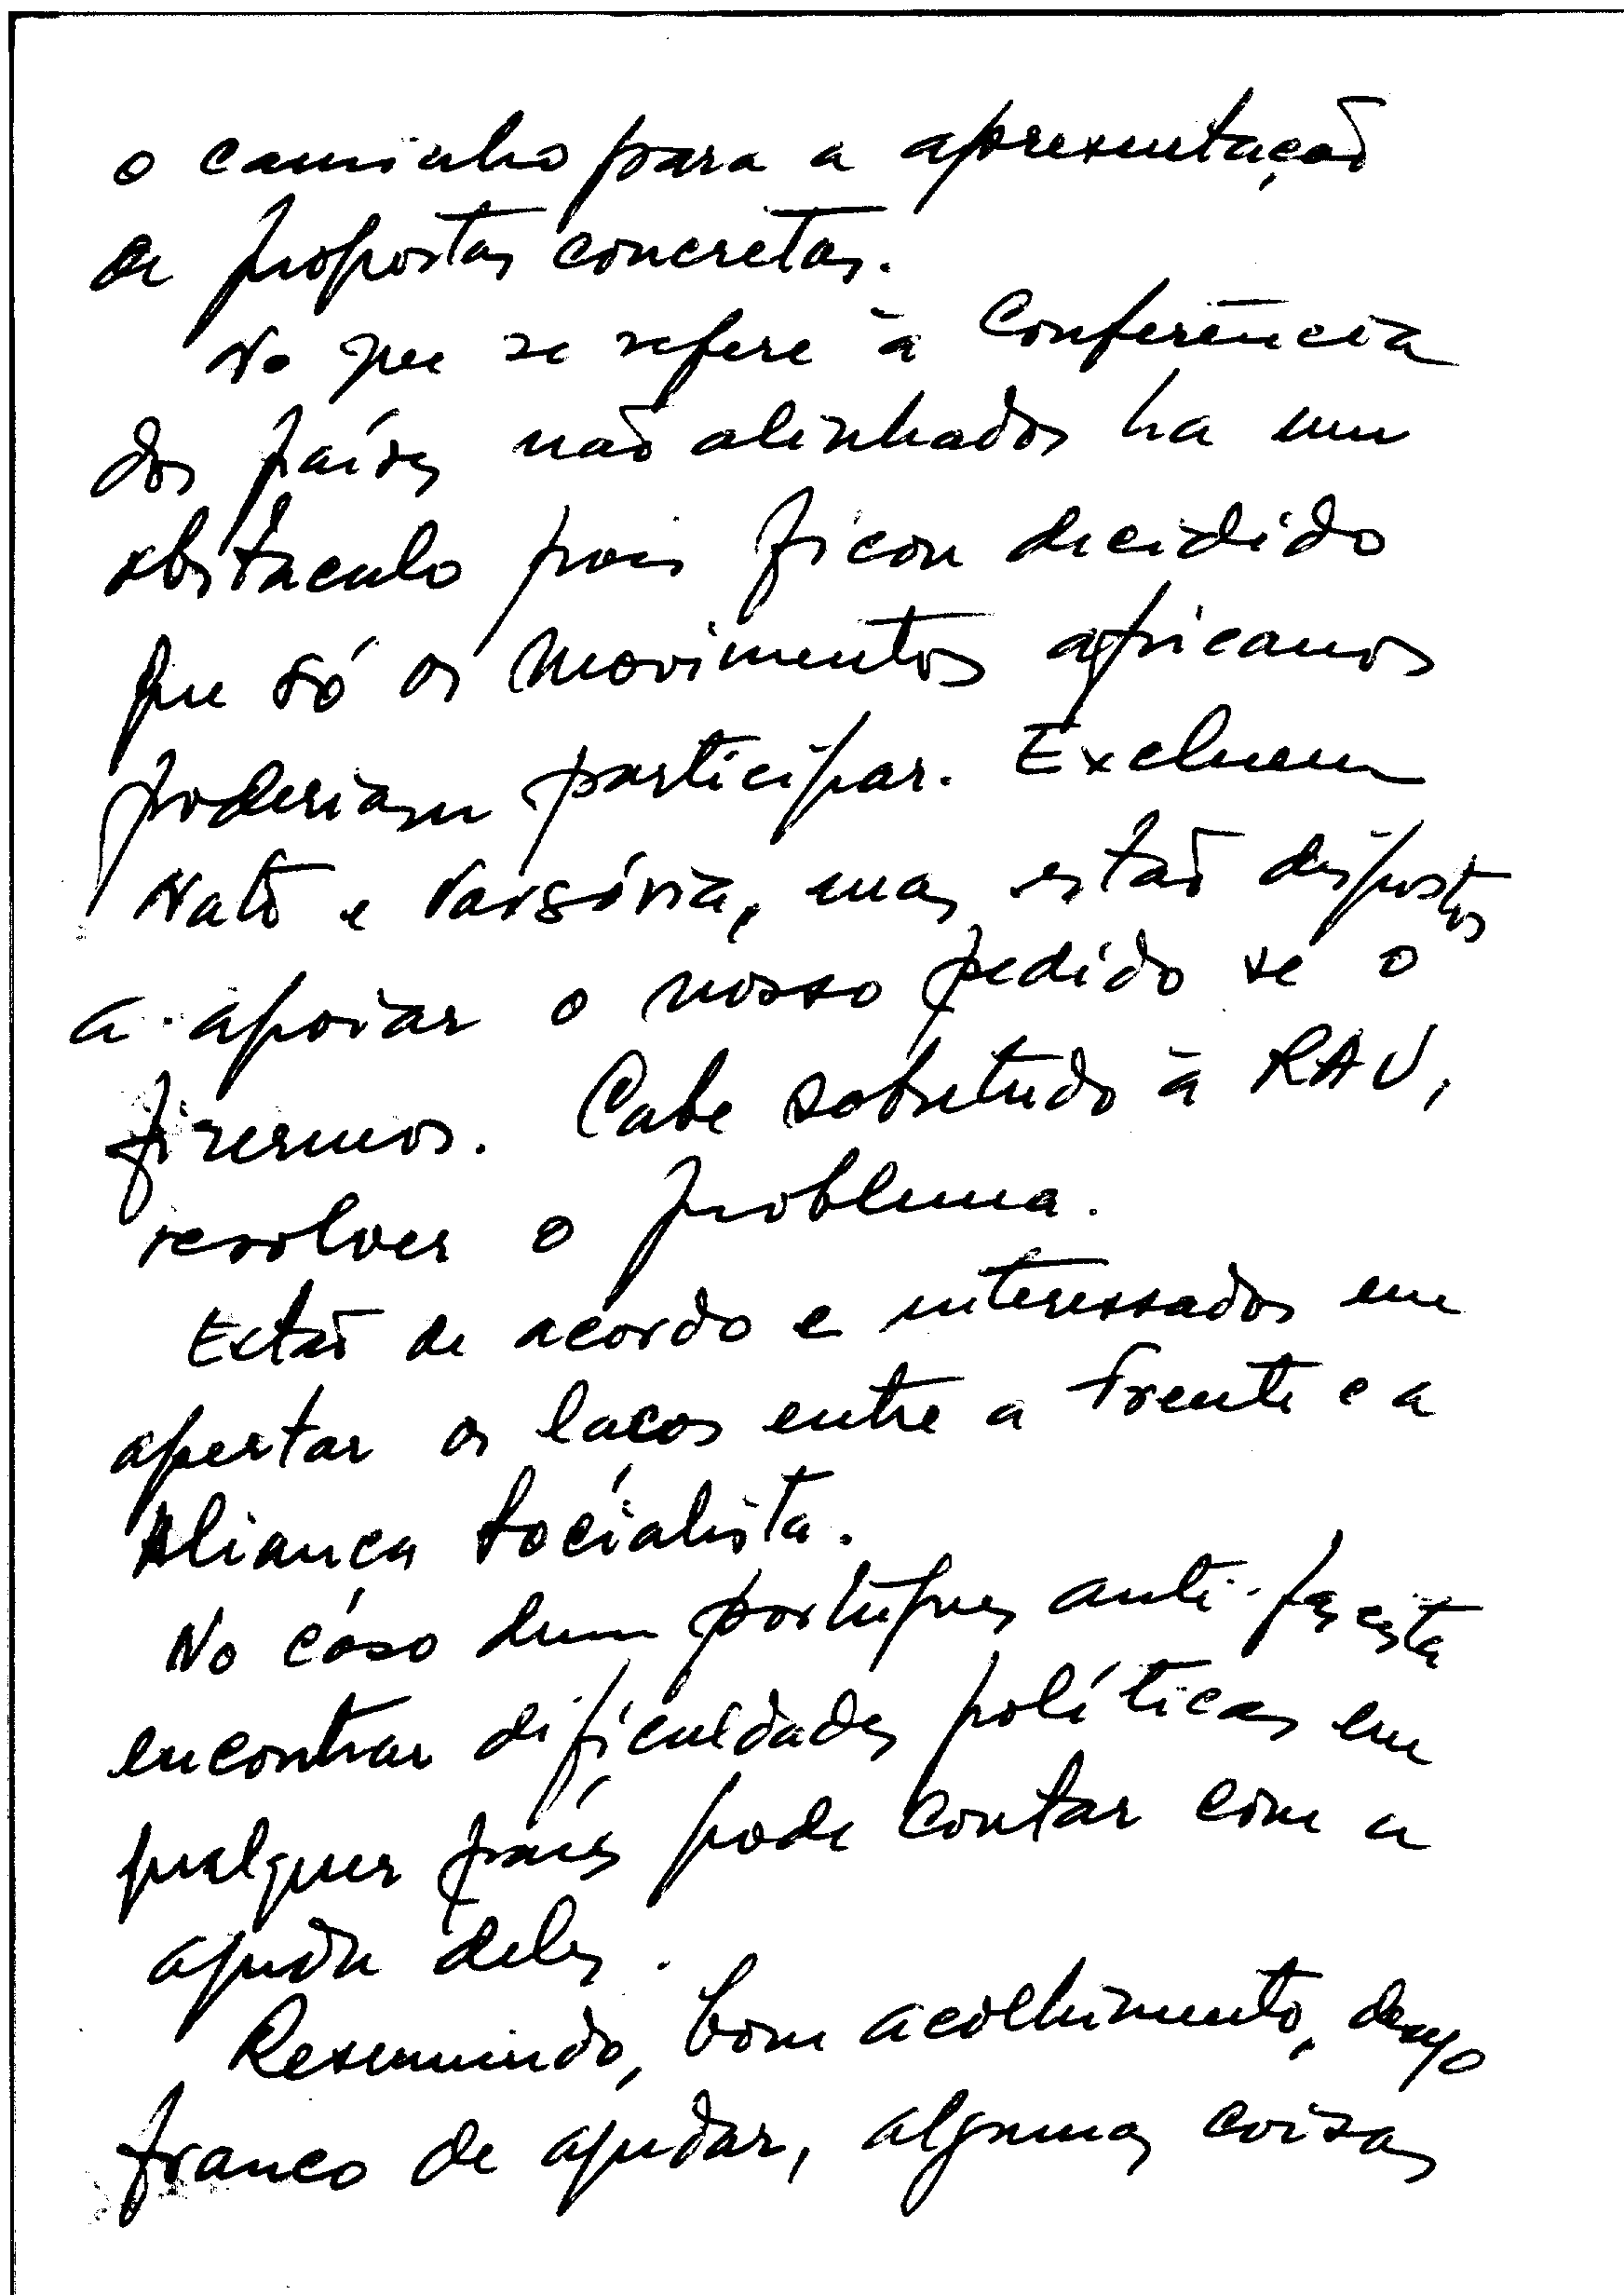 o caminho para a apresentação
de propostas concretas.
No que se refere à Conferência
dos países não alinhados ha um
obstáculo pois ficou decidido
que só os movimentos africanos
poderiam participar. Excluem
Nato e Varsóvia, mas estão dispostos
a apoiar o nosso pedido se o
fizermos. Cabe sobretudo à RAU,
resolver o problema.
Estão de acordo e interessados em
apertar os laços entre a Frente e a
Aliança Socialista.
No cáso dum português anti-fascista
encontrar dificuldades políticas em
qualquer país pode contar com a
ajuda deles.
Resumindo, bom acolhimento, desejo
franco de ajudar, algumas coisas